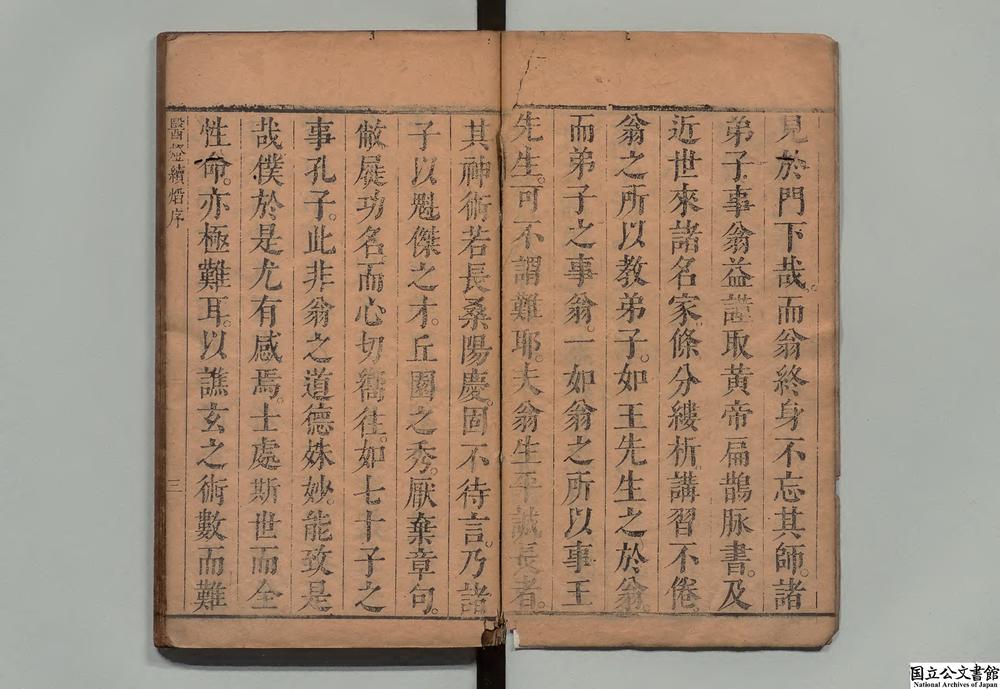 見於門下哉。而翁終身不忘其師。諸
弟子事翁益謹取黃帝扁鵲脉書。及
近世來諸名家條分縷析講習不倦。
翁之所以教弟子。如王先生之於翁。
而弟子之事翁。一如翁之所以事王
先生。可不謂難耶。夫翁生平誠長者。
其神術若長桑陽慶。固不待言。乃諸
子以魁傑之才。丘園之秀。厭棄章句。
敝屣功名。而心切嚮往。如七十子之
事孔子。此非翁之道德姝妙。能致是
哉。僕於是尤有感焉。士處斯世而全
性命。亦極難耳。以譙玄之術數而難
醫燈續焰序
三
国立公文書館
National Archives of Japan